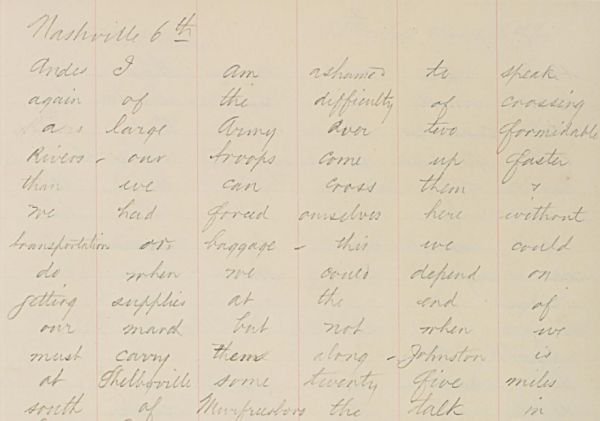 Nashville 6th
Andes I am ashamed to speak
again of the difficulty of crossing
a large Army over two formidable
Rivers - our troops come up faster
than we can cross them &
we had forced ourselves here without
transportation or baggage - this we could
do when we could depend on
getting supplies at the end of
our march but not when we
must carry them along - Johnston is
at Shelbyville some twenty five miles
south of Murfreesboro the talk in